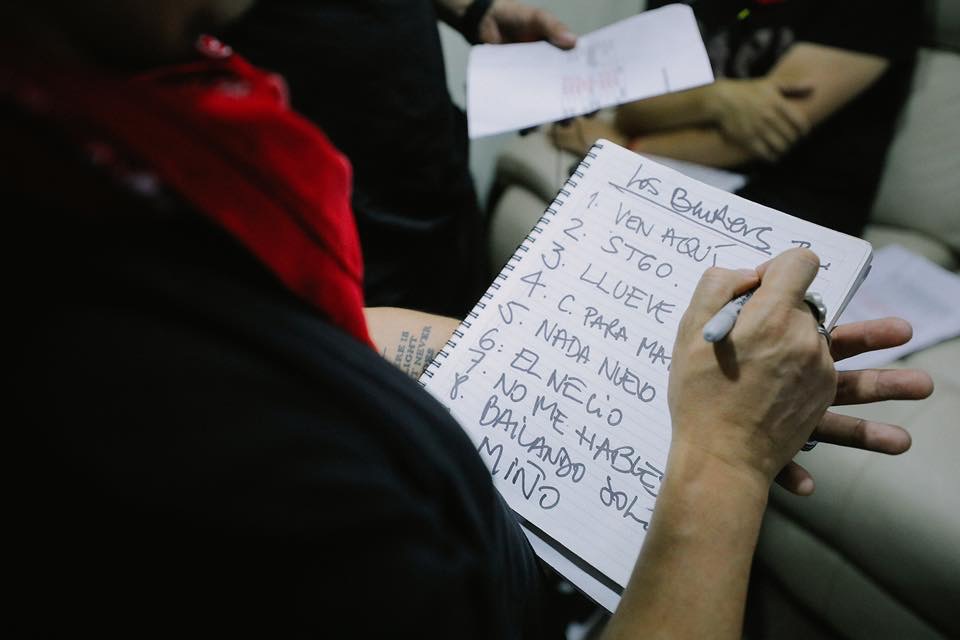 LOS BUNKERS
1. VEN AQUÍ
2. STGO.
3. LLUEVE
4. C. PARA MA
5. NADA NUEVO
6. EL NECIO
7. NO ME HABLES
8. BAILANDO SOLO
MIÑO
ERE IS
LIGHT
NEVER